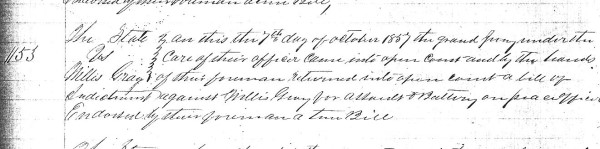 Endorsed by their foreman a true Bill,
The State } on this the 7th day of October 1857 the grand Jury under the
1153 Vs } Care of their officer Came into open Court and by the hands
Willis Gray } of their foreman returned into open Court a bill of
Indictment against Willis Gray for assault & Battery on peace officer
Endorsed by their foreman a true Bill